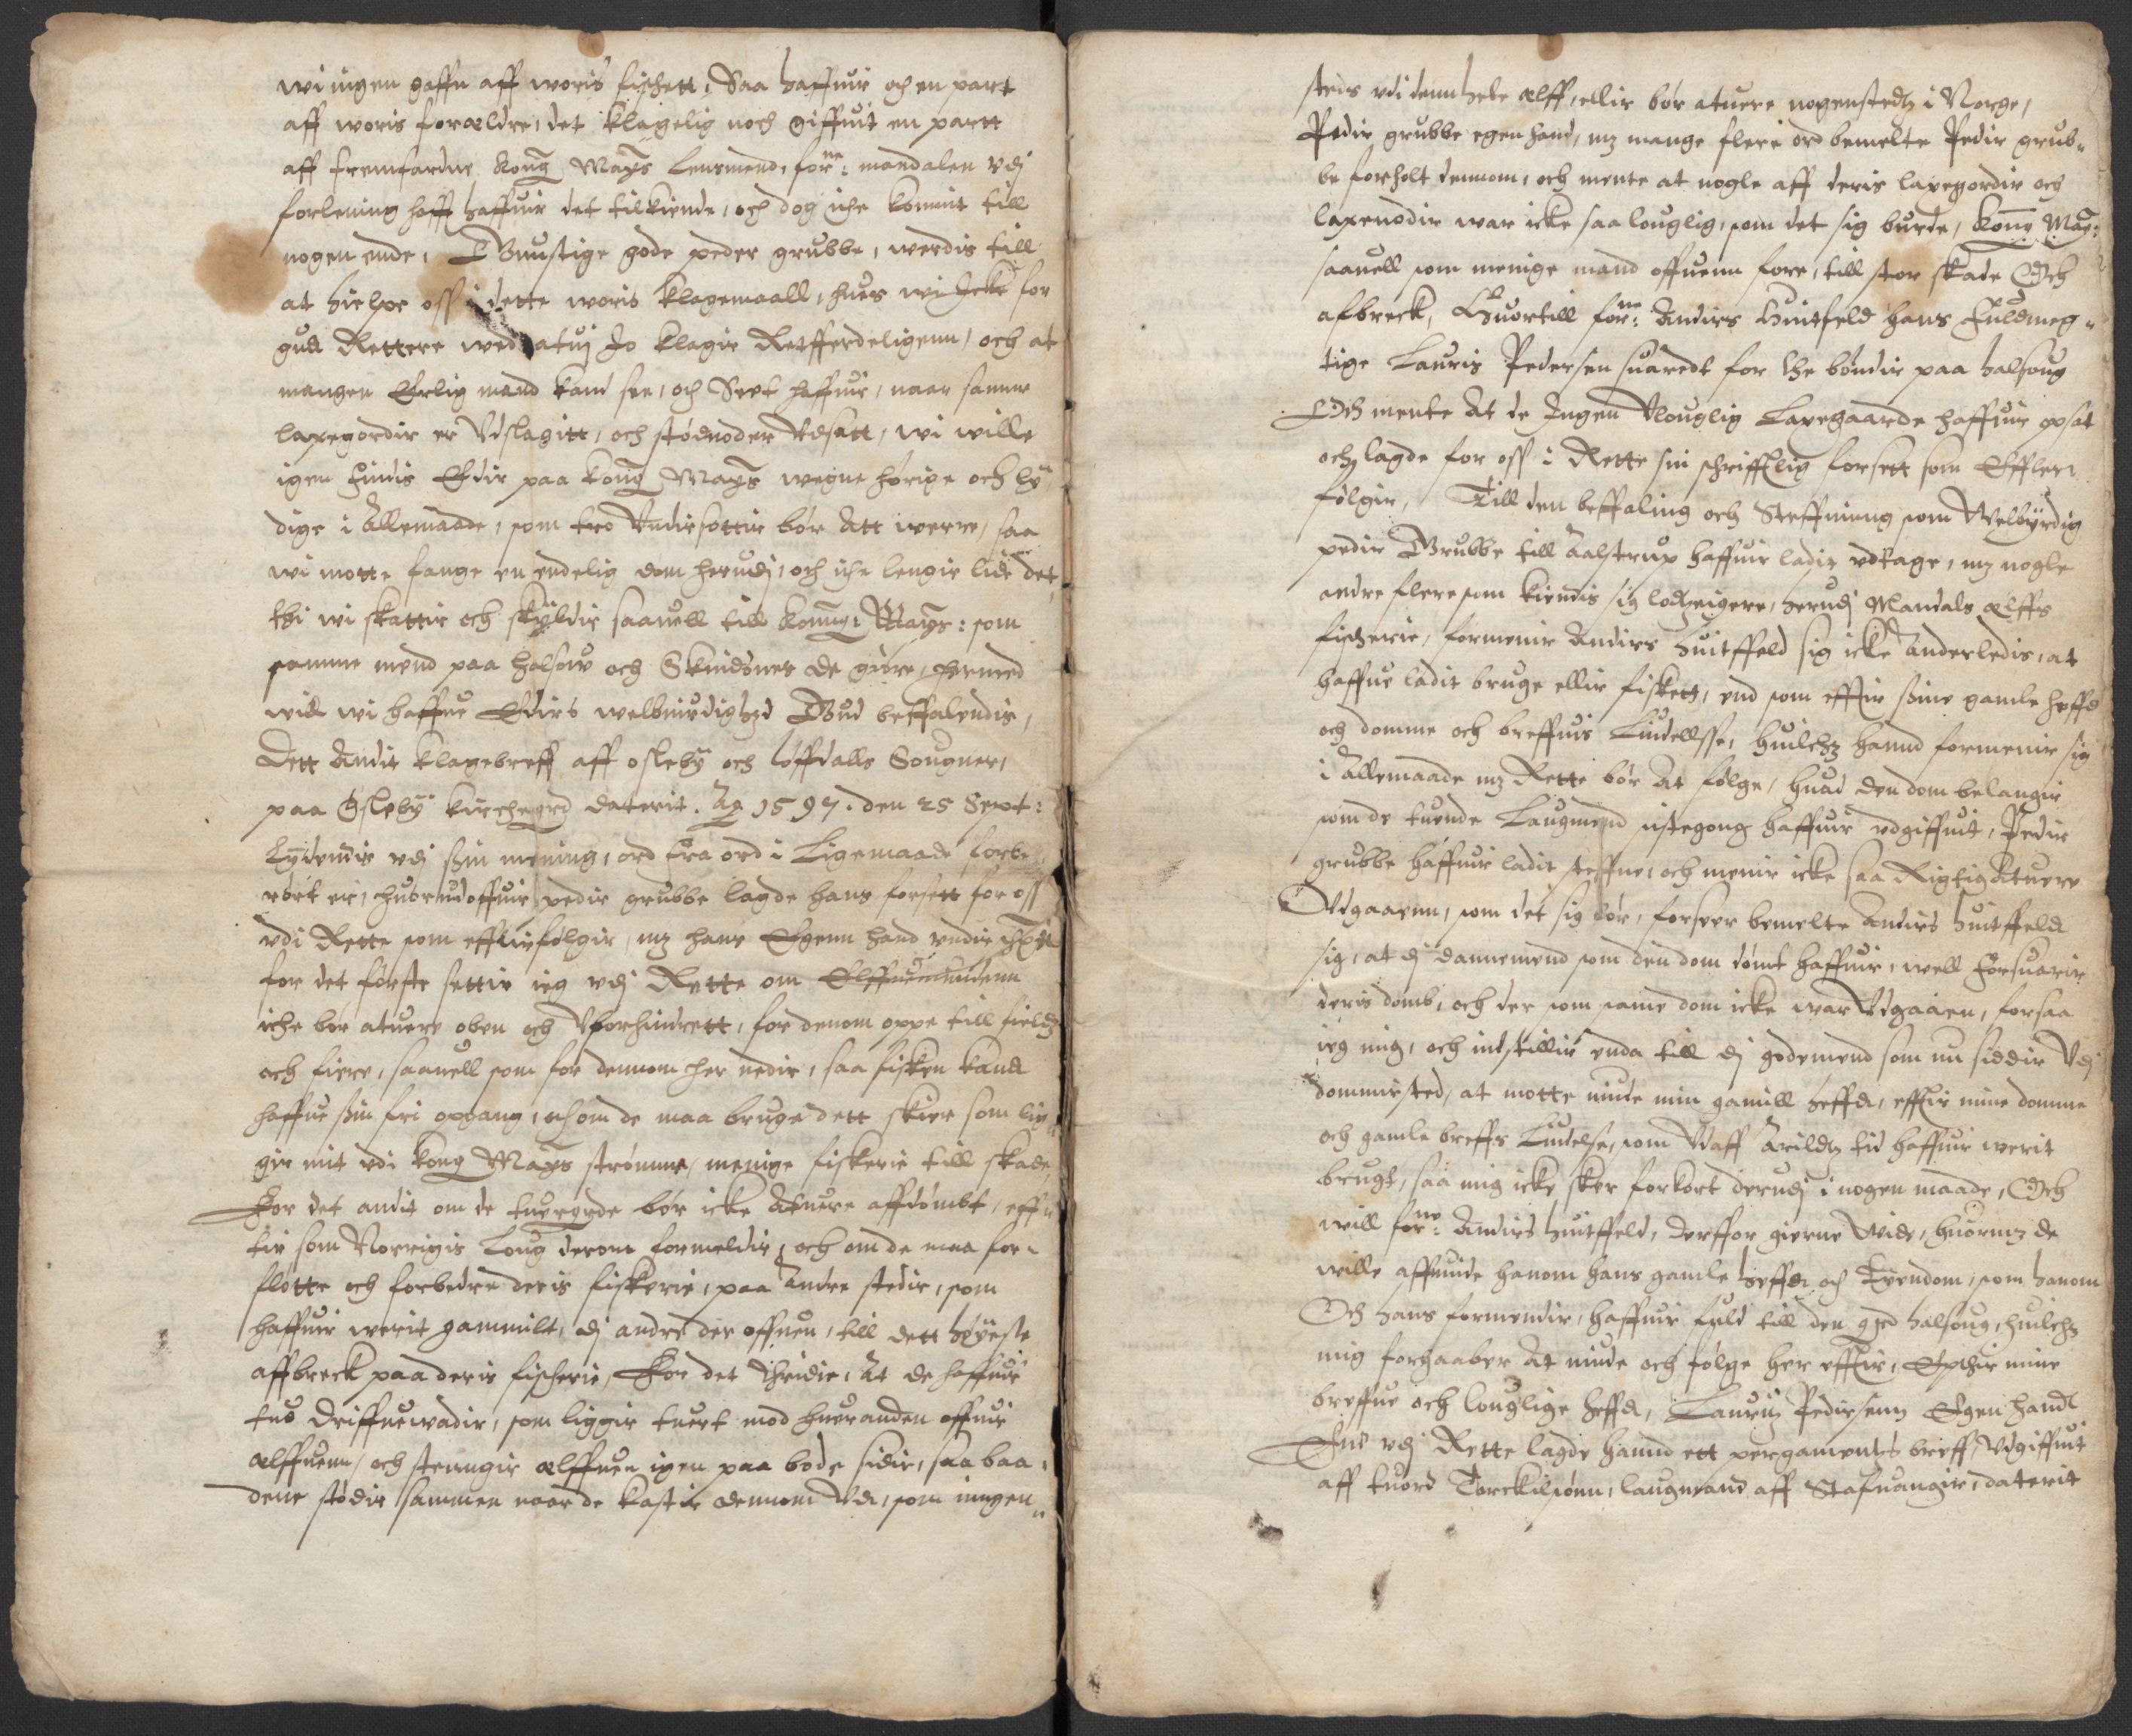 wi ingen gaffn aff woris fischett, Saa haffuir och en part
aff woris forældre, det klagelig noch giffuit en partt
aff fremfardne Kong Mayts Lensmend, forne: mandalen vdj
forlening hafft haffuir det tilkiende, och dog iche kommit till
nogen ende, Gunstige gode peder grubbe, werdis till
at hielpe oss i dette woris klagemaall, huis wi Icke for
gud Rettere wed atuj Jo klagir Retfferdeligenn, och at
mangen Erlig mand kand see, och Seet haffuir, naar samme
laxegordir er Vdslagitt, och stødnoder Vdsatt, wi wille
igen findis Edir paa Kong Mayts wegne hørige och ly
dige i Allemaade, som tro Vndirsottir bør Att werre, saa
wi motte fange en endelig dom herudj, och iche lengir lide det,
thi wi skattir och skyldir saauell till Konng: Mayts: som
samme mend paa halsow och Skindsnes de giøre, hermed
wid wi haffue Edirs welbiurdighed Gud beffalendis,
Dett Andit klagebreff aff osleby och løffdalls Sougner,
paa Osleby kirchegord daterit. Ao 1597. den 25 Sept:
Lydendis vdj sin mening, ord fra ord i Ligemaade forbe
rørt er, huorudoffuir pedir grubbe lagde hans forsett for oss
vdi Rette som effterfølgir, mz hans Egenn hand vndir
for det første settir ieg vdj Rette om Elffuemundenn
iche bør atuere oben och Vforhindrett, for denom oppe till fieldz
och fiere, saauell som for dennom her nedir, saa fisken kand
haffue sin fri opgang, och om de maa bruge dett skier som lig
gir mit vdi Kong Mayts strømme, menige fiskerie till skade,
For det andit om de tuergorde bør icke Atuere affdømbt, eff
tir som Norrigis Loug derom formeldir, och om de maa for
fløtte och forbedre deris fiskerie, paa Andre stedir, som
haffuir werit gammilt, dj andre der offuen, till dett høyeste
affbreck paa deris fischerie, For det thridie, At de haffuir
tuo Driffuewadir, som liggir tuert mod hueranden offuir
ælffuenn, och stenngir ælffuen igen paa bode sidir, saa baa
dene stødir sammen naar de kastir dennom Vd, som inngen
steds vdi denn hele ælff, ellir bør atuere nogenstedtz i Norge,
Pedir grubbe egen hand, mz mange flere ord bemelte Pedir grub
be forholt dennom, och mente at nogle aff deris laxegordir och
laxenodir war icke saa louglig, som det sig burde, Kong May:
saauell som menige mand offuenn fore, till stor skade Och
afbreck, Huortill forne: Andirs Huitfeld hans fuldmeg
tige Lauris Pedersen suaredt for the bøndir paa halsoug
Och mente At de Ingen Vlouglig Laxegaarde haffuir opsat
och lagde for oss i Rette sin schrifftlig forsett som Effter
følgir, Till den beffaling och Steffning som Welbyrdig
pedir Grubbe till Aalstrup haffuir ladit vdtage, mz nogle
andre flere som kiendis sig lodzeigere, herudj Mandals ælffs
fischerie, formenir Andirs huitffeld sig icke Anderledis, at
haffue ladit bruge ellir fiskett, end som efftir sine gamle heffd
och domme och breffuis Liudellsse, huilchz hannd formenir sig
i Allemaade mz Rette bør At følge, huad den dom belangir
som de tuende Laugmend sistegong haffuir vdgiffuit, Pedir
grubbe haffuir ladit steffne, och menir icke saa Rigtig Atuere
Vdgaaenn, som det sig bør, forseer bemelte Andirs huitffeld
sig, at dj dannemend som den dom dømt haffuir, well forsuarir
deris domb, och der som same dom icke war Vdgaaen, forsaa
ieg mig, och indstillir enda till dj godemend som nu siddir Vdj
dommirsted, at motte niude min gamill heffd, efftir mine domme
och gamle breffs Liudelse, som Vdaff Arildtz tid haffuir werit
brugt, saa mig icke sker forkort derudj i nogen maade, Och
will forne: Andirs huitffeld, derffor gierne Wide, huormz de
wille affuinde hanom hans gamle heffd och Eyendom, som hanom
Och hans formendir, haffuir fuld till den gord halsoug, huilchz
mig forhaaber At niude och følge her efftir, Epthir mine
breffue och louglige heffd, Lauritz Pedirsenn Egen handt
End vdj Rette lagde hannd ett pergaments breff Vdgiffuit
aff tuord Torckilsønn, laugmand aff Stafuangir, daterit